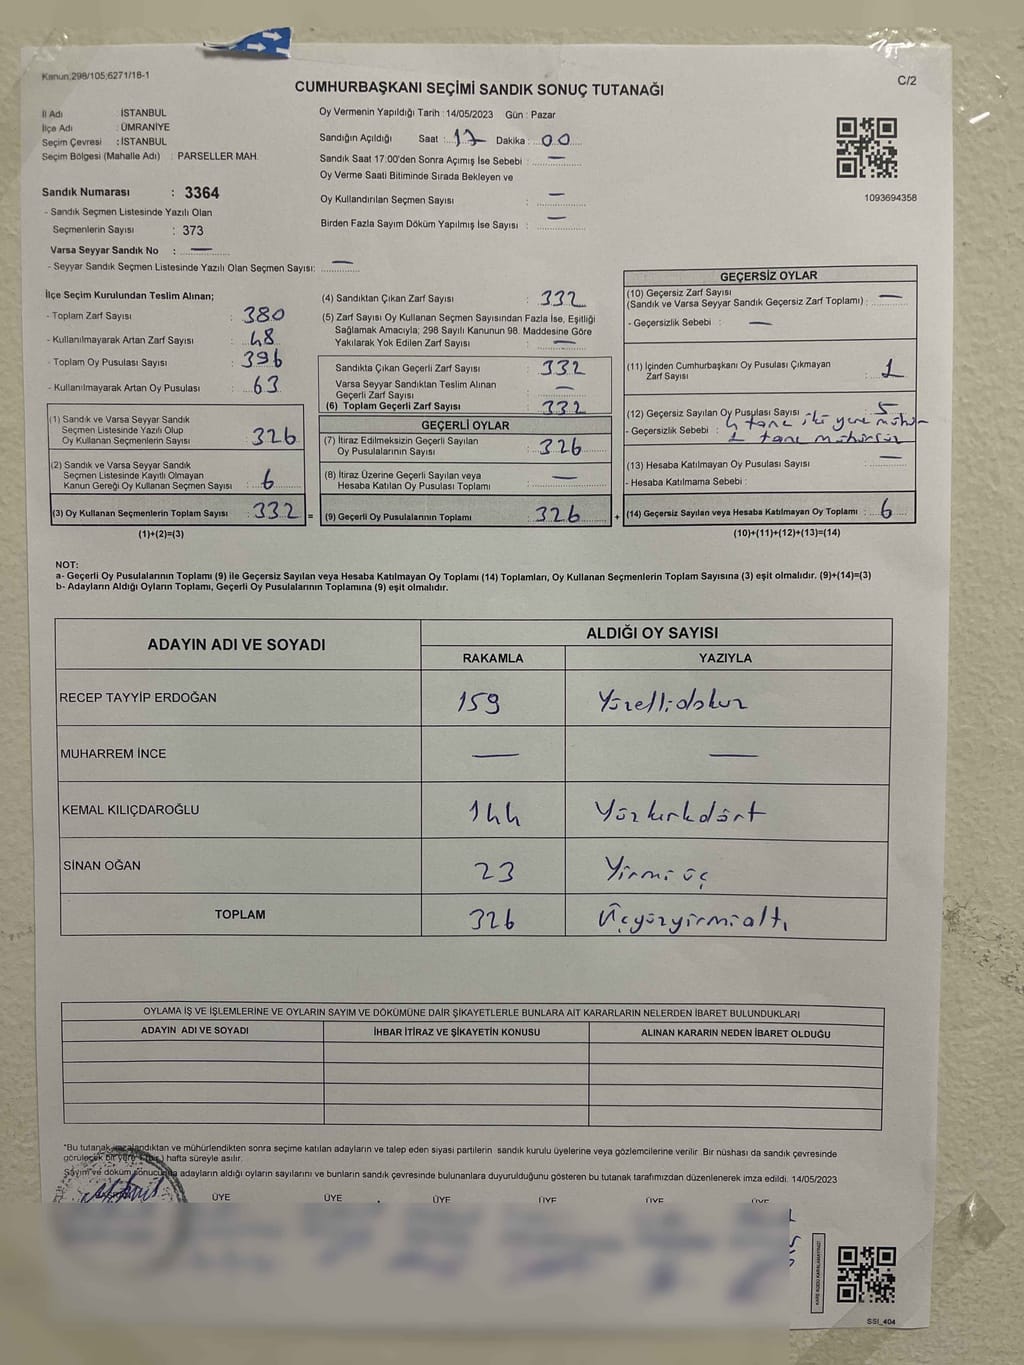 Kanun;298/105;6271/18-1
C/2
CUMHURBAŞKANI SEÇİMİ SANDIK SONUÇ TUTANAĞI
İl Adı : İSTANBUL
İlçe Adı : ÜMRANİYE
Seçim Çevresi : İSTANBUL
Seçim Bölgesi (Mahalle Adı) : PARSELLER MAH.
Sandık Numarası : 3364
- Sandık Seçmen Listesinde Yazılı Olan
Seçmenlerin Sayısı : 373
Varsa Seyyar Sandık No : —
- Seyyar Sandık Seçmen Listesinde Yazılı Olan Seçmen Sayısı: —
Oy Vermenin Yapıldığı Tarih : 14/05/2023 Gün : Pazar
Sandığın Açıldığı Saat : 17 Dakika : 00
Sandık Saat 17.00'den Sonra Açımış İse Sebebi : —
Oy Verme Saati Bitiminde Sırada Bekleyen ve
Oy Kullandırılan Seçmen Sayısı : —
Birden Fazla Sayım Döküm Yapılmış İse Sayısı : —
1093694358
İlçe Seçim Kurulundan Teslim Alınan;
- Toplam Zarf Sayısı : 380
- Kullanılmayarak Artan Zarf Sayısı : 48
- Toplam Oy Pusulası Sayısı : 396
- Kullanılmayarak Artan Oy Pusulası : 63
(1) Sandık ve Varsa Seyyar Sandık
Seçmen Listesinde Yazılı Olup
Oy Kullanan Seçmenlerin Sayısı : 326
(2) Sandık ve Varsa Seyyar Sandık
Seçmen Listesinde Kayıtlı Olmayan
Kanun Gereği Oy Kullanan Seçmen Sayısı : 6
(3) Oy Kullanan Seçmenlerin Toplam Sayısı : 332 =
(1)+(2)=(3)
(4) Sandıktan Çıkan Zarf Sayısı : 332
(5) Zarf Sayısı Oy Kullanan Seçmen Sayısından Fazla İse, Eşitliği
Sağlamak Amacıyla; 298 Sayılı Kanunun 98. Maddesine Göre
Yakılarak Yok Edilen Zarf Sayısı : —
Sandıkta Çıkan Geçerli Zarf Sayısı : 332
Varsa Seyyar Sandıktan Teslim Alınan
Geçerli Zarf Sayısı : —
(6) Toplam Geçerli Zarf Sayısı : 332
GEÇERLİ OYLAR
(7) İtiraz Edilmeksizin Geçerli Sayılan
Oy Pusulalarının Sayısı : 326
(8) İtiraz Üzerine Geçerli Sayılan veya
Hesaba Katılan Oy Pusulası Toplamı : —
(9) Geçerli Oy Pusulalarının Toplamı : 326 +
GEÇERSİZ OYLAR
(10) Geçersiz Zarf Sayısı
(Sandık ve Varsa Seyyar Sandık Geçersiz Zarf Toplamı) : —
- Geçersizlik Sebebi : —
(11) İçinden Cumhurbaşkanı Oy Pusulası Çıkmayan
Zarf Sayısı : 1
(12) Geçersiz Sayılan Oy Pusulası Sayısı : 5
- Geçersizlik Sebebi : 4 tane iki yere mühür
1 tane mühürsüz
(13) Hesaba Katılmayan Oy Pusulası Sayısı : —
- Hesaba Katılmama Sebebi :
(14) Geçersiz Sayılan veya Hesaba Katılmayan Oy Toplamı : 6
(10)+(11)+(12)+(13)=(14)
NOT:
a- Geçerli Oy Pusulalarının Toplamı (9) ile Geçersiz Sayılan veya Hesaba Katılmayan Oy Toplamı (14) Toplamları, Oy Kullanan Seçmenlerin Toplam Sayısına (3) eşit olmalıdır. (9)+(14)=(3)
b- Adayların Aldığı Oyların Toplamı, Geçerli Oy Pusulalarının Toplamına (9) eşit olmalıdır.
ADAYIN ADI VE SOYADI
ALDIĞI OY SAYISI
RAKAMLA YAZIYLA
RECEP TAYYİP ERDOĞAN 159 Yüzellidokuz
MUHARREM İNCE — —
KEMAL KILIÇDAROĞLU 144 Yüzkırkdört
SİNAN OĞAN 23 Yirmiüç
TOPLAM 326 Üçyüzyirmialtı
OYLAMA İŞ VE İŞLEMLERİNE VE OYLARIN SAYIM VE DÖKÜMÜNE DAİR ŞİKAYETLERLE BUNLARA AİT KARARLARIN NELERDEN İBARET BULUNDUKLARI
ADAYIN ADI VE SOYADI İHBAR İTİRAZ VE ŞİKAYETİN KONUSU ALINAN KARARIN NEDEN İBARET OLDUĞU
*Bu tutanak imzalandıktan ve mühürlendikten sonra seçime katılan adayların ve talep eden siyasi partilerin sandık kurulu üyelerine veya gözlemcilerine verilir. Bir nüshası da sandık çevresinde
görülecek bir yere 1 (bir) hafta süreyle asılır.
Sayım ve döküm sonucunda adayların aldığı oyların sayılarını ve bunların sandık çevresinde bulunanlara duyurulduğunu gösteren bu tutanak tarafımızdan düzenlenerek imza edildi. 14/05/2023
ÜYE ÜYE ÜYE ÜYE ÜYE ÜYE
KARE KODU KARALAMAYINIZ!
SSI_404